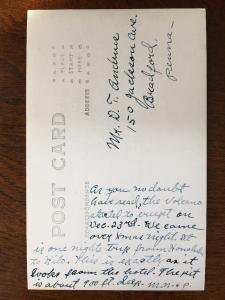 POST CARD
PLACE
STAMP
HERE
CORRESPONDENCE
ADDRESS
Mr. D. T. Andrus
150 Jackson Ave.
Bradford.
Penna—
As you no doubt
have read, the Volcano
started to erupt on
Dec. 23rd. We came
over Xmas night. It
is one night trip from Honolulu
to Hilo. This is exactly as it
looks from the hotel. The pit
is about 900 ft. deep. M.N.+P.